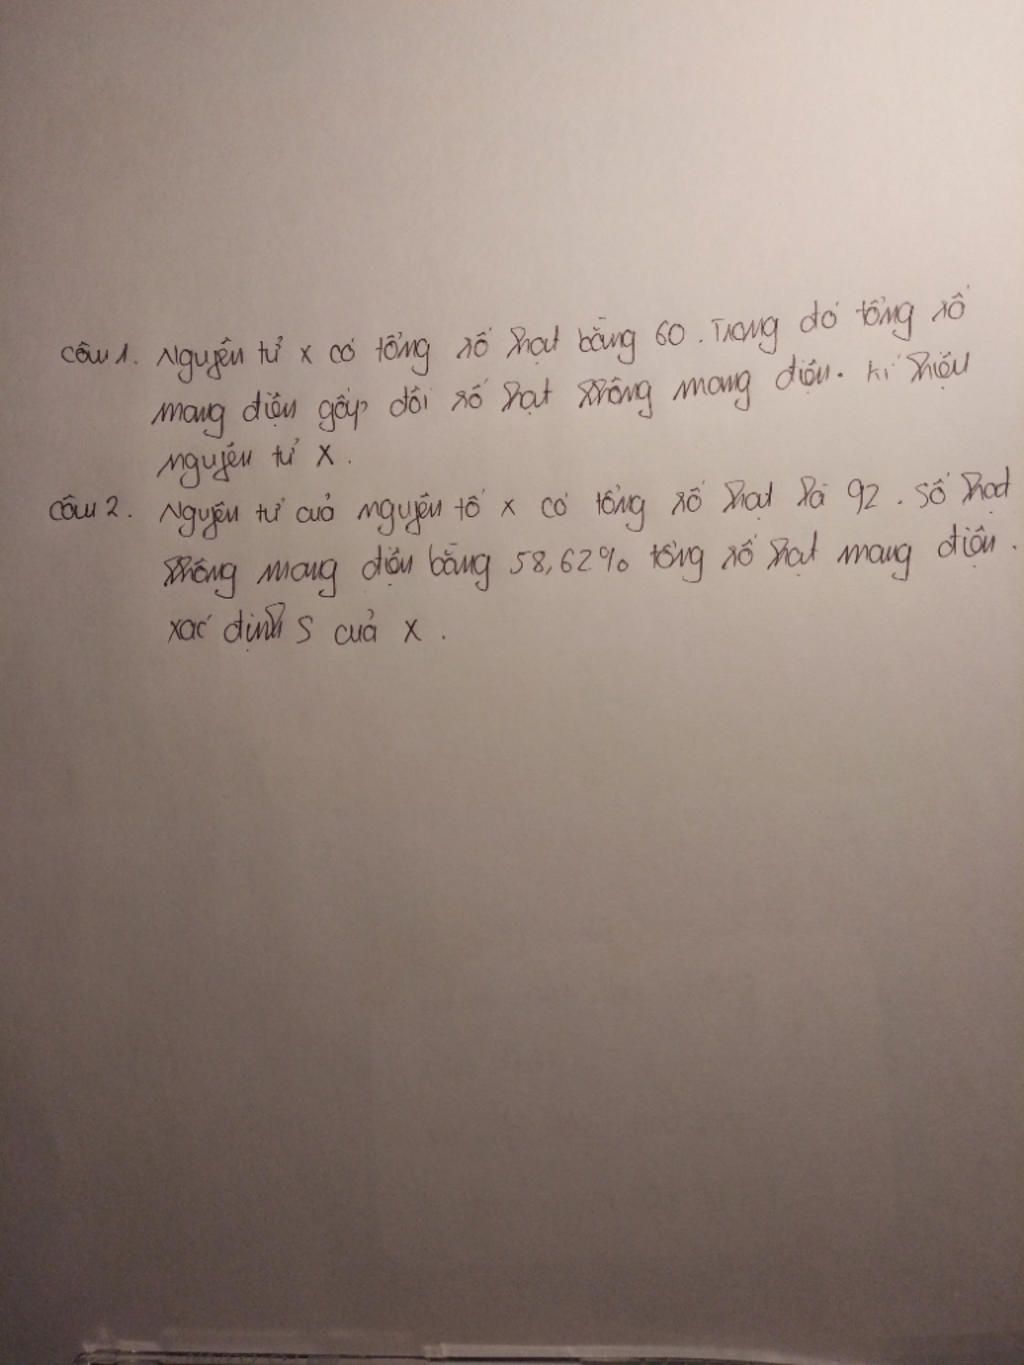 Câu 1. Nguyên tử x có tổng số hạt bằng 60. Trong đó tổng số
mang điện gấp đôi số hạt không mang điện. Kí hiệu
nguyên tử X.
Câu 2. Nguyên tử của nguyên tố x có tổng số hạt là 92. Số hạt
không mang điện bằng 58,62% tổng số hạt mang điện.
xác định S của X.